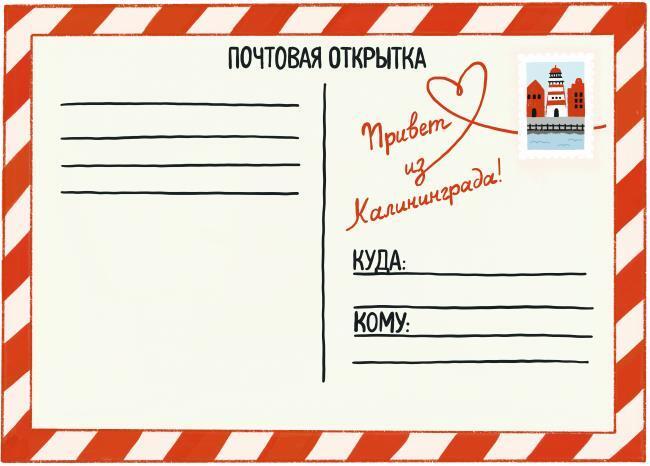 ПОЧТОВАЯ ОТКРЫТКА
Привет
из
Калининграда!
КУДА:
КОМУ: